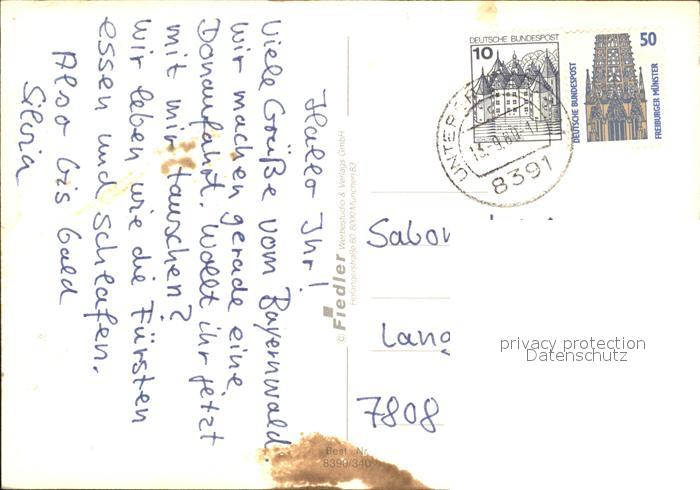 Hallo Ihr!
Viele Grüße vom Bayernwald.
Wir machen gerade eine
Donaufahrt. Wollt ihr jetzt
mit mir tauschen?
Wir leben wie die Fürsten
essen und schlafen.
Also bis bald
Silvia
© Fiedler Werbestudio & Verlags GmbH
Hofangerstraße 60 8000 München 83
Best. Nr.
8399/340
DEUTSCHE BUNDESPOST
10
50
DEUTSCHE BUNDESPOST
FREIBURGER MÜNSTER
8391
7808
privacy protection
Datenschutz